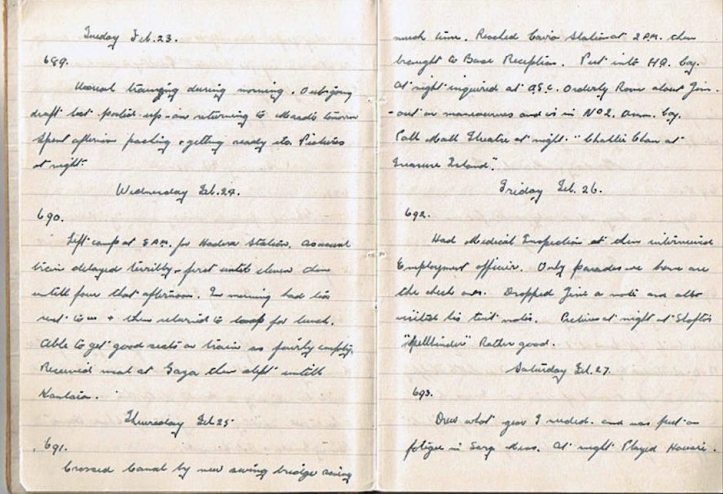 Tuesday Feb. 23.
689.
Usual training during morning. Outgoing
draft list posted up - am returning to
spent afternoon packing & getting ready etc. Pictures
at night.
Wednesday Feb. 24.
690.
Left camp at 8 A.M. for Hadera Station. As usual
train delayed terribly, first until eleven then
untill four that afternoon. In morning had tea
sent to us & then returned to camp for lunch.
Able to get good seats on train as fairly empty.
Received meal at Gaza then slept untill
Kantara.
Thursday Feb 25
691.
Crossed Canal by new swing bridge saving
much time. Reached Cairo Station at 2 P.M. then
brought to Base Reception. Put into H.Q. Coy.
At night inquired at Orderly Room about Jim.
- out on manoeuvres and is in No 2. Amm. Coy.
Pall Mall Theatre at night. "Charlie Chan at
Treasure Island".
Friday Feb. 26.
692.
Had Medical Inspection at then interviewed
Employment officer. Only parades we have are
the check ones. Dropped Jim a note and also
visited his tent mates. Pictures at night at Shafto's
"Spellbinder" Rather good.
Saturday Feb. 27.
693.
Drew what gear I needed. and was put on
fatigue in Serg Mess. At night Played Housie.